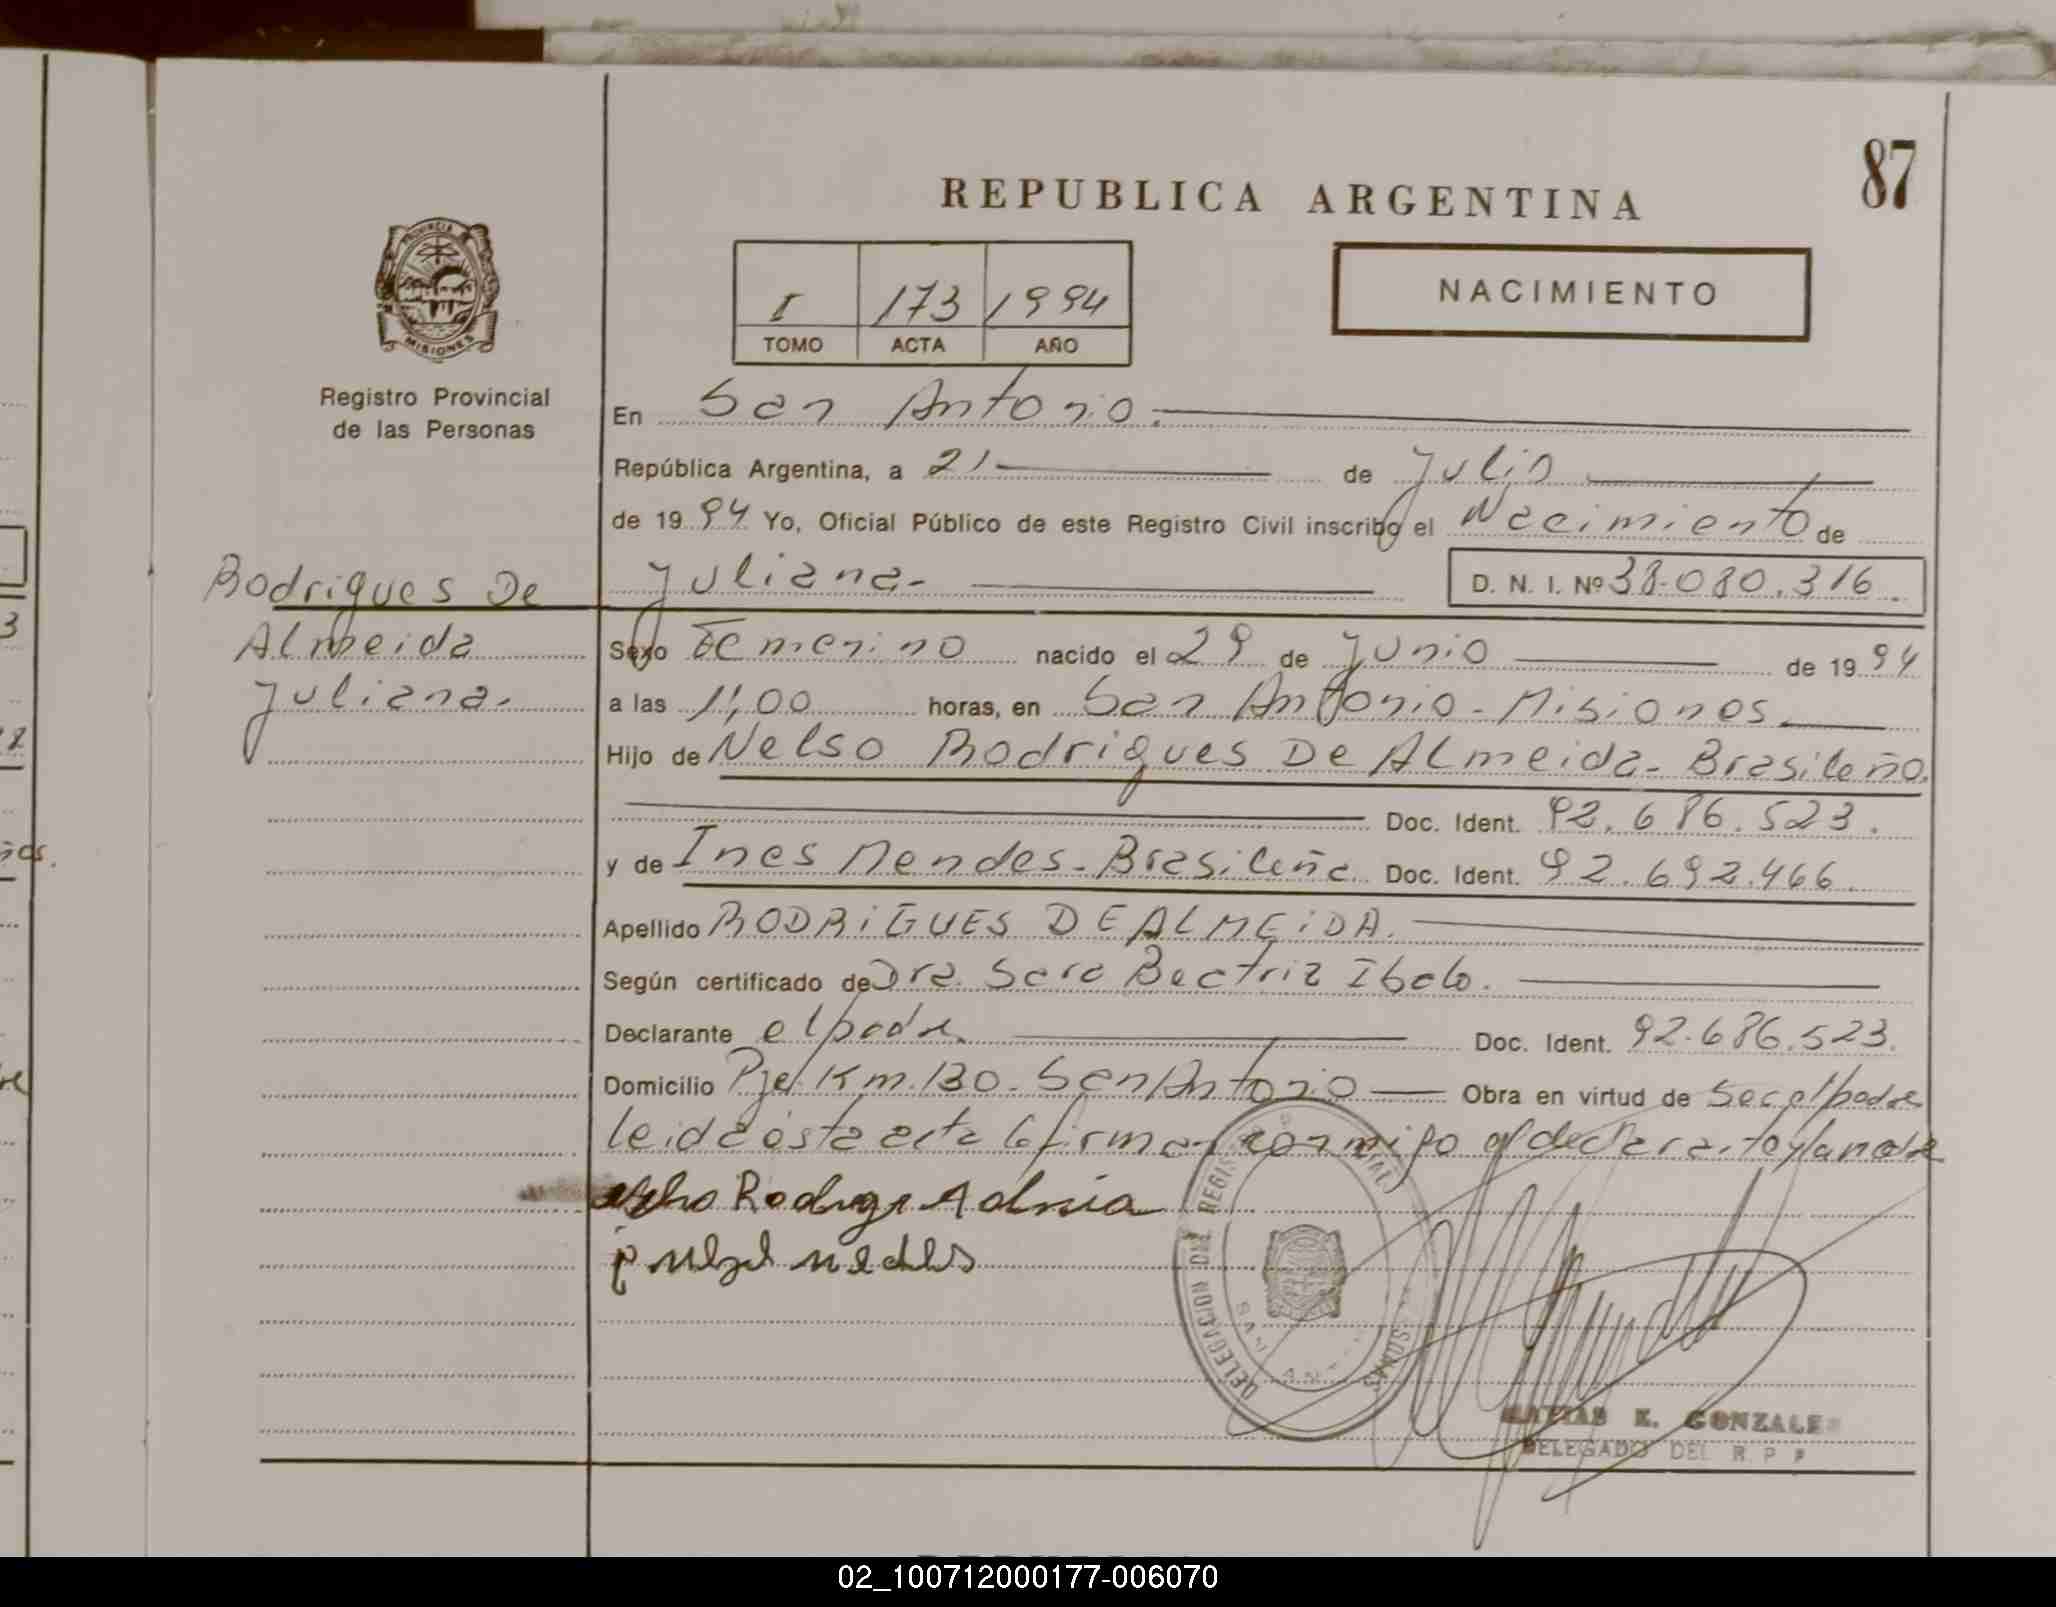 87
REPUBLICA ARGENTINA
PROVINCIA
MISIONES
I 173 1994
TOMO ACTA AÑO
NACIMIENTO
Registro Provincial
de las Personas
En San Antonio.
República Argentina, a 21 de Julio
de 1994 Yo, Oficial Público de este Registro Civil inscribo el Nacimiento de
Rodrigues De
Almeida
Juliana.
Juliana- D. N. I. Nº 38.080.316.
Sexo Femenino nacido el 29 de Junio de 1994
a las 11,00 horas, en San Antonio - Misiones.
Hijo de Nelso Rodrigues De Almeida- Brasileño.
Doc. Ident. 92.686.523.
y de Ines Mendes- Brasileña Doc. Ident. 92.692.466
Apellido RODRIGUES DE ALMEIDA.
Según certificado de Dra. Sara Beatriz Ibalo.
Declarante el padre. Doc. Ident. 92.686.523.
Domicilio Pje. Km. 130. San Antonio Obra en virtud de Ser el padre
leida ésta acta la firman conmigo el declarante y la madre
DELEGACION DEL REGISTRO
SAN
MATIAS E. GONZALEZ
DELEGADO DEL R. P. P
02_100712000177-006070